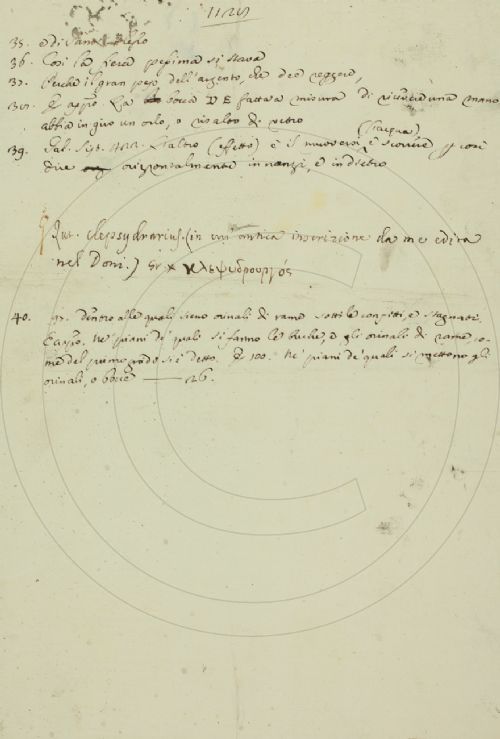 35. e di
36. Così la sera pessima si stava
37. Perché il gran peso dell'argento, che deo reggere,
38. E appo. La bocca DE fatta a misura di una mano
abbia in giro un orlo, o rialto di vetro
39. Gal. Sist. 422. L'altro (effetto) è il muoversi, e scorrere (l'acqua) p così
dire orizontalmente innanzi, e indietro
clepsydrarius. (in un' antica inscrizione da me edita
nel Doni.) Gr. κλεψυδρουργός
40. 97. Dentro alle quali sieno orinali di rame sottile confitti, e stagnati.
E appo. Ne' piani de' quali si fanno le buche, e gli orinali di rame co-
me del primo modo si è detto. E 100. Ne' piani de' quali si mettono gli
orinali, o bocce